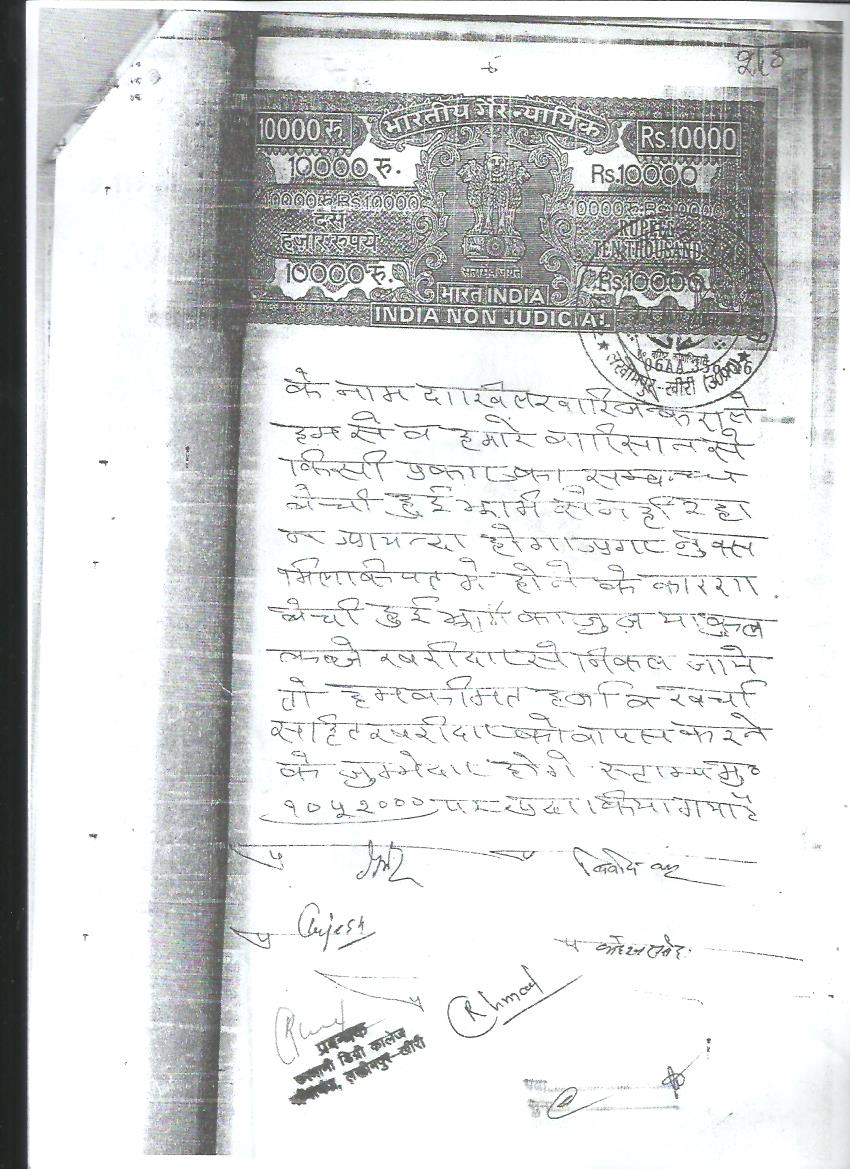 भारतीय गैर न्यायिक
10000 रु
Rs.10000
10000 रु.
Rs.10000
10000 रु. RS 10000
10000 रु. RS 10000
दस
हजार रुपये
RUPEES
TEN THOUSAND
10000 रु.
Rs.10000
सत्यमेव जयते
भारत INDIA
INDIA NON JUDICIAL
06AA
लखीमपुर-खीरी (उ०प्र०)
के नाम दाखिल खारिज करा ले
हम से व हमारे वारिसान से
किसी प्रकार का सम्बन्ध
बेची हुई भूमि से नहीं रहा
न आयन्दा होगा अगर नुक्स
मिलकियत में होने के कारण
बेची हुई भूमि का जुज़ या कुल
कब्जे खरीदार से निकल जाये
तो हम कीमत हर्जा व खर्चा
सहित खरीदार को वापस करने
के जुम्मेदार होगे स्टाम्प मु०
१०५२००० पर अदा किया गया है
Rhmad
प्रबन्धक
डिग्री कालेज
लखीमपुर-खीरी